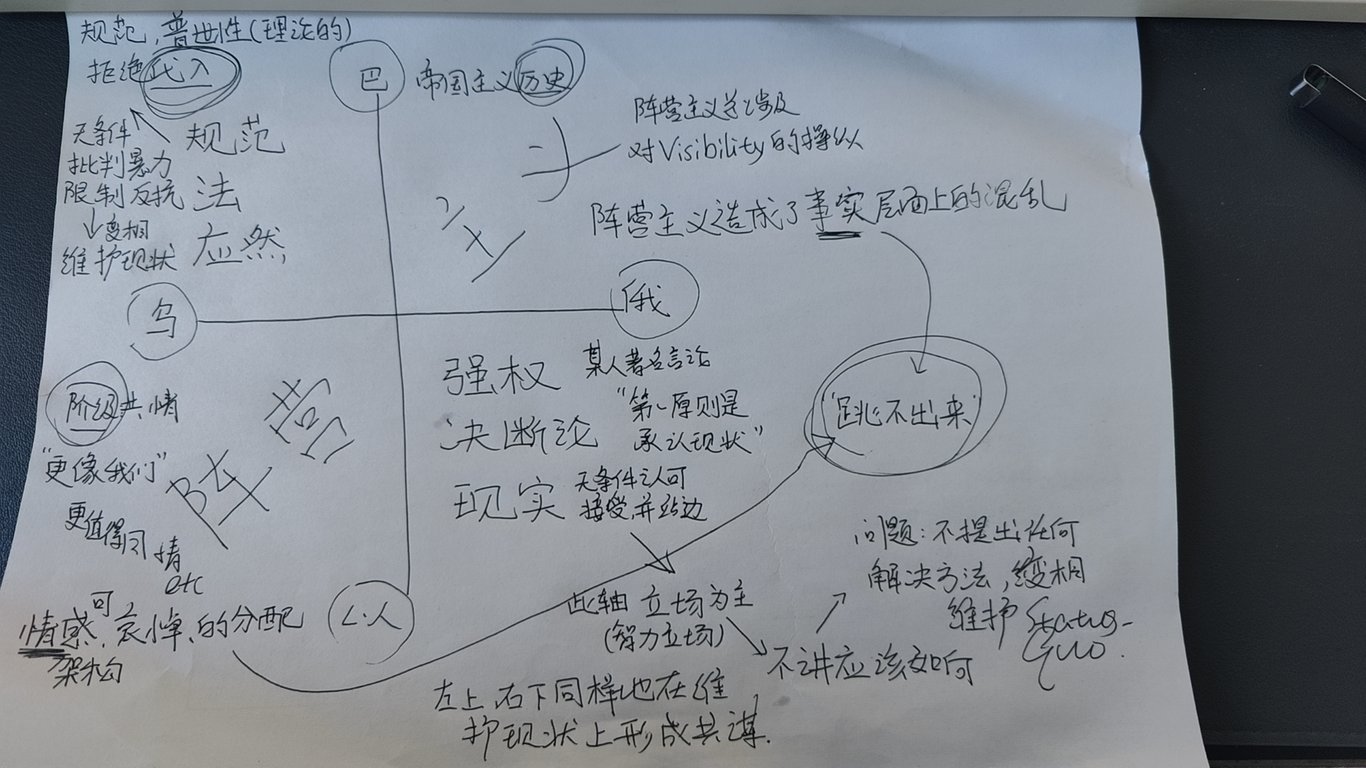 规范,普世性(理论的)
拒绝代入
无条件
批判暴力
限制反抗
↓变相
维护现状
规范
法
应然
巴
帝国主义历史
阵营主义总涉及
对Visibility的操纵
阵营主义造成了事实层面上的混乱
乌
俄
以
人
阶级共情
"更像我们"
更值得同情
etc
阵营
情感,可哀悼,的分配
架构
强权
决断论
现实
某人著名言论
"第一原则是
承认现状"
无条件认可
接受,并站边
"跳不出来"
此轴 立场为主
(智力立场)
不讲应该如何
问题:不提出任何
解决方法,变相
维护 Status-
Quo.
左上,右下同样地在维
护现状上形成共谋.